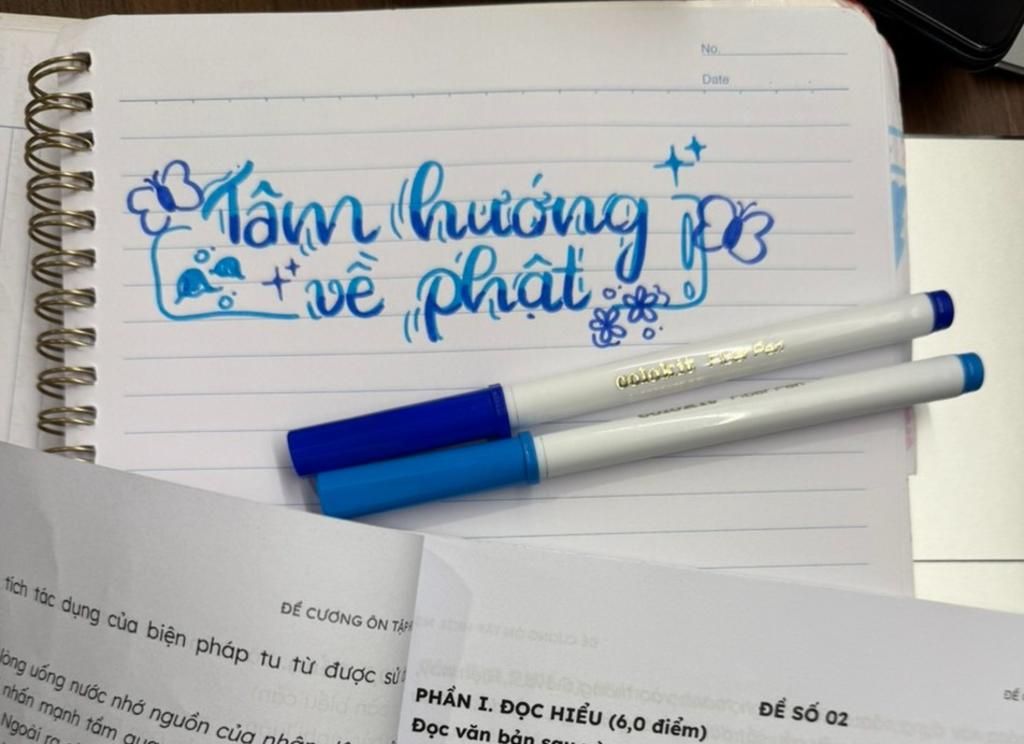 No.
Date
Tâm hướng
về phật
colokit Fiber Pen
colokit Fiber Pen
tích tác dụng của biện pháp tu từ được sử
ĐỀ CƯƠNG ÔN TẬP
lòng uống nước nhớ nguồn của nhân
nhấn mạnh tấm
Ngoài ra
PHẦN I. ĐỌC HIỂU (6,0 điểm)
ĐỀ SỐ 02
Đọc văn bản sau